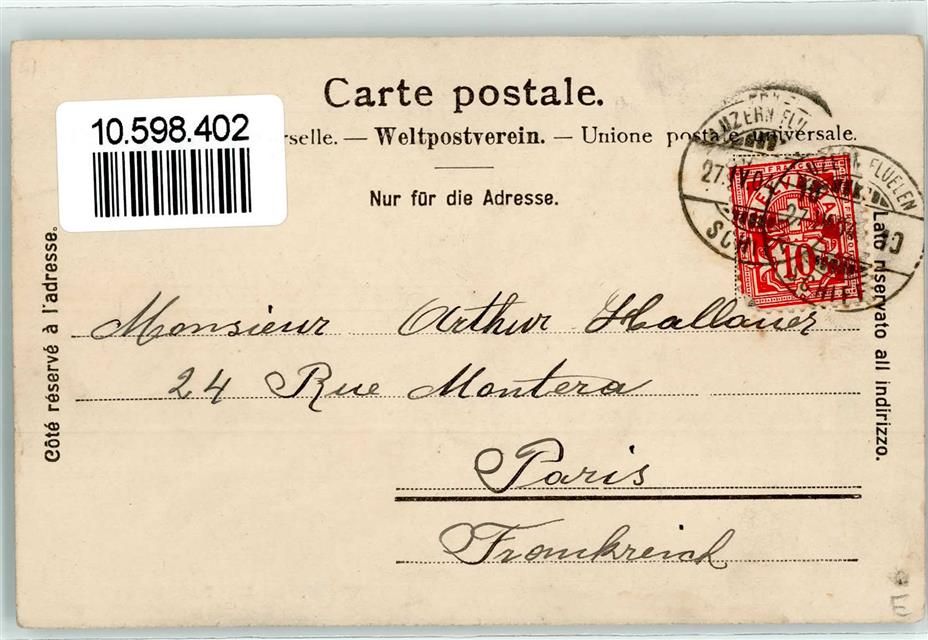 Carte postale.
10.598.402
rselle. — Weltpostverein. — Unione postale universale.
Nur für die Adresse.
Côté réservé à l'adresse.
Lato riservato all indirizzo.
LUZERN FLÜ
FLUELEN
27.
SCH
FRANCO
10
Monsieur Arthur Hallauer
24 Rue Montera
Paris
Frankreich
E